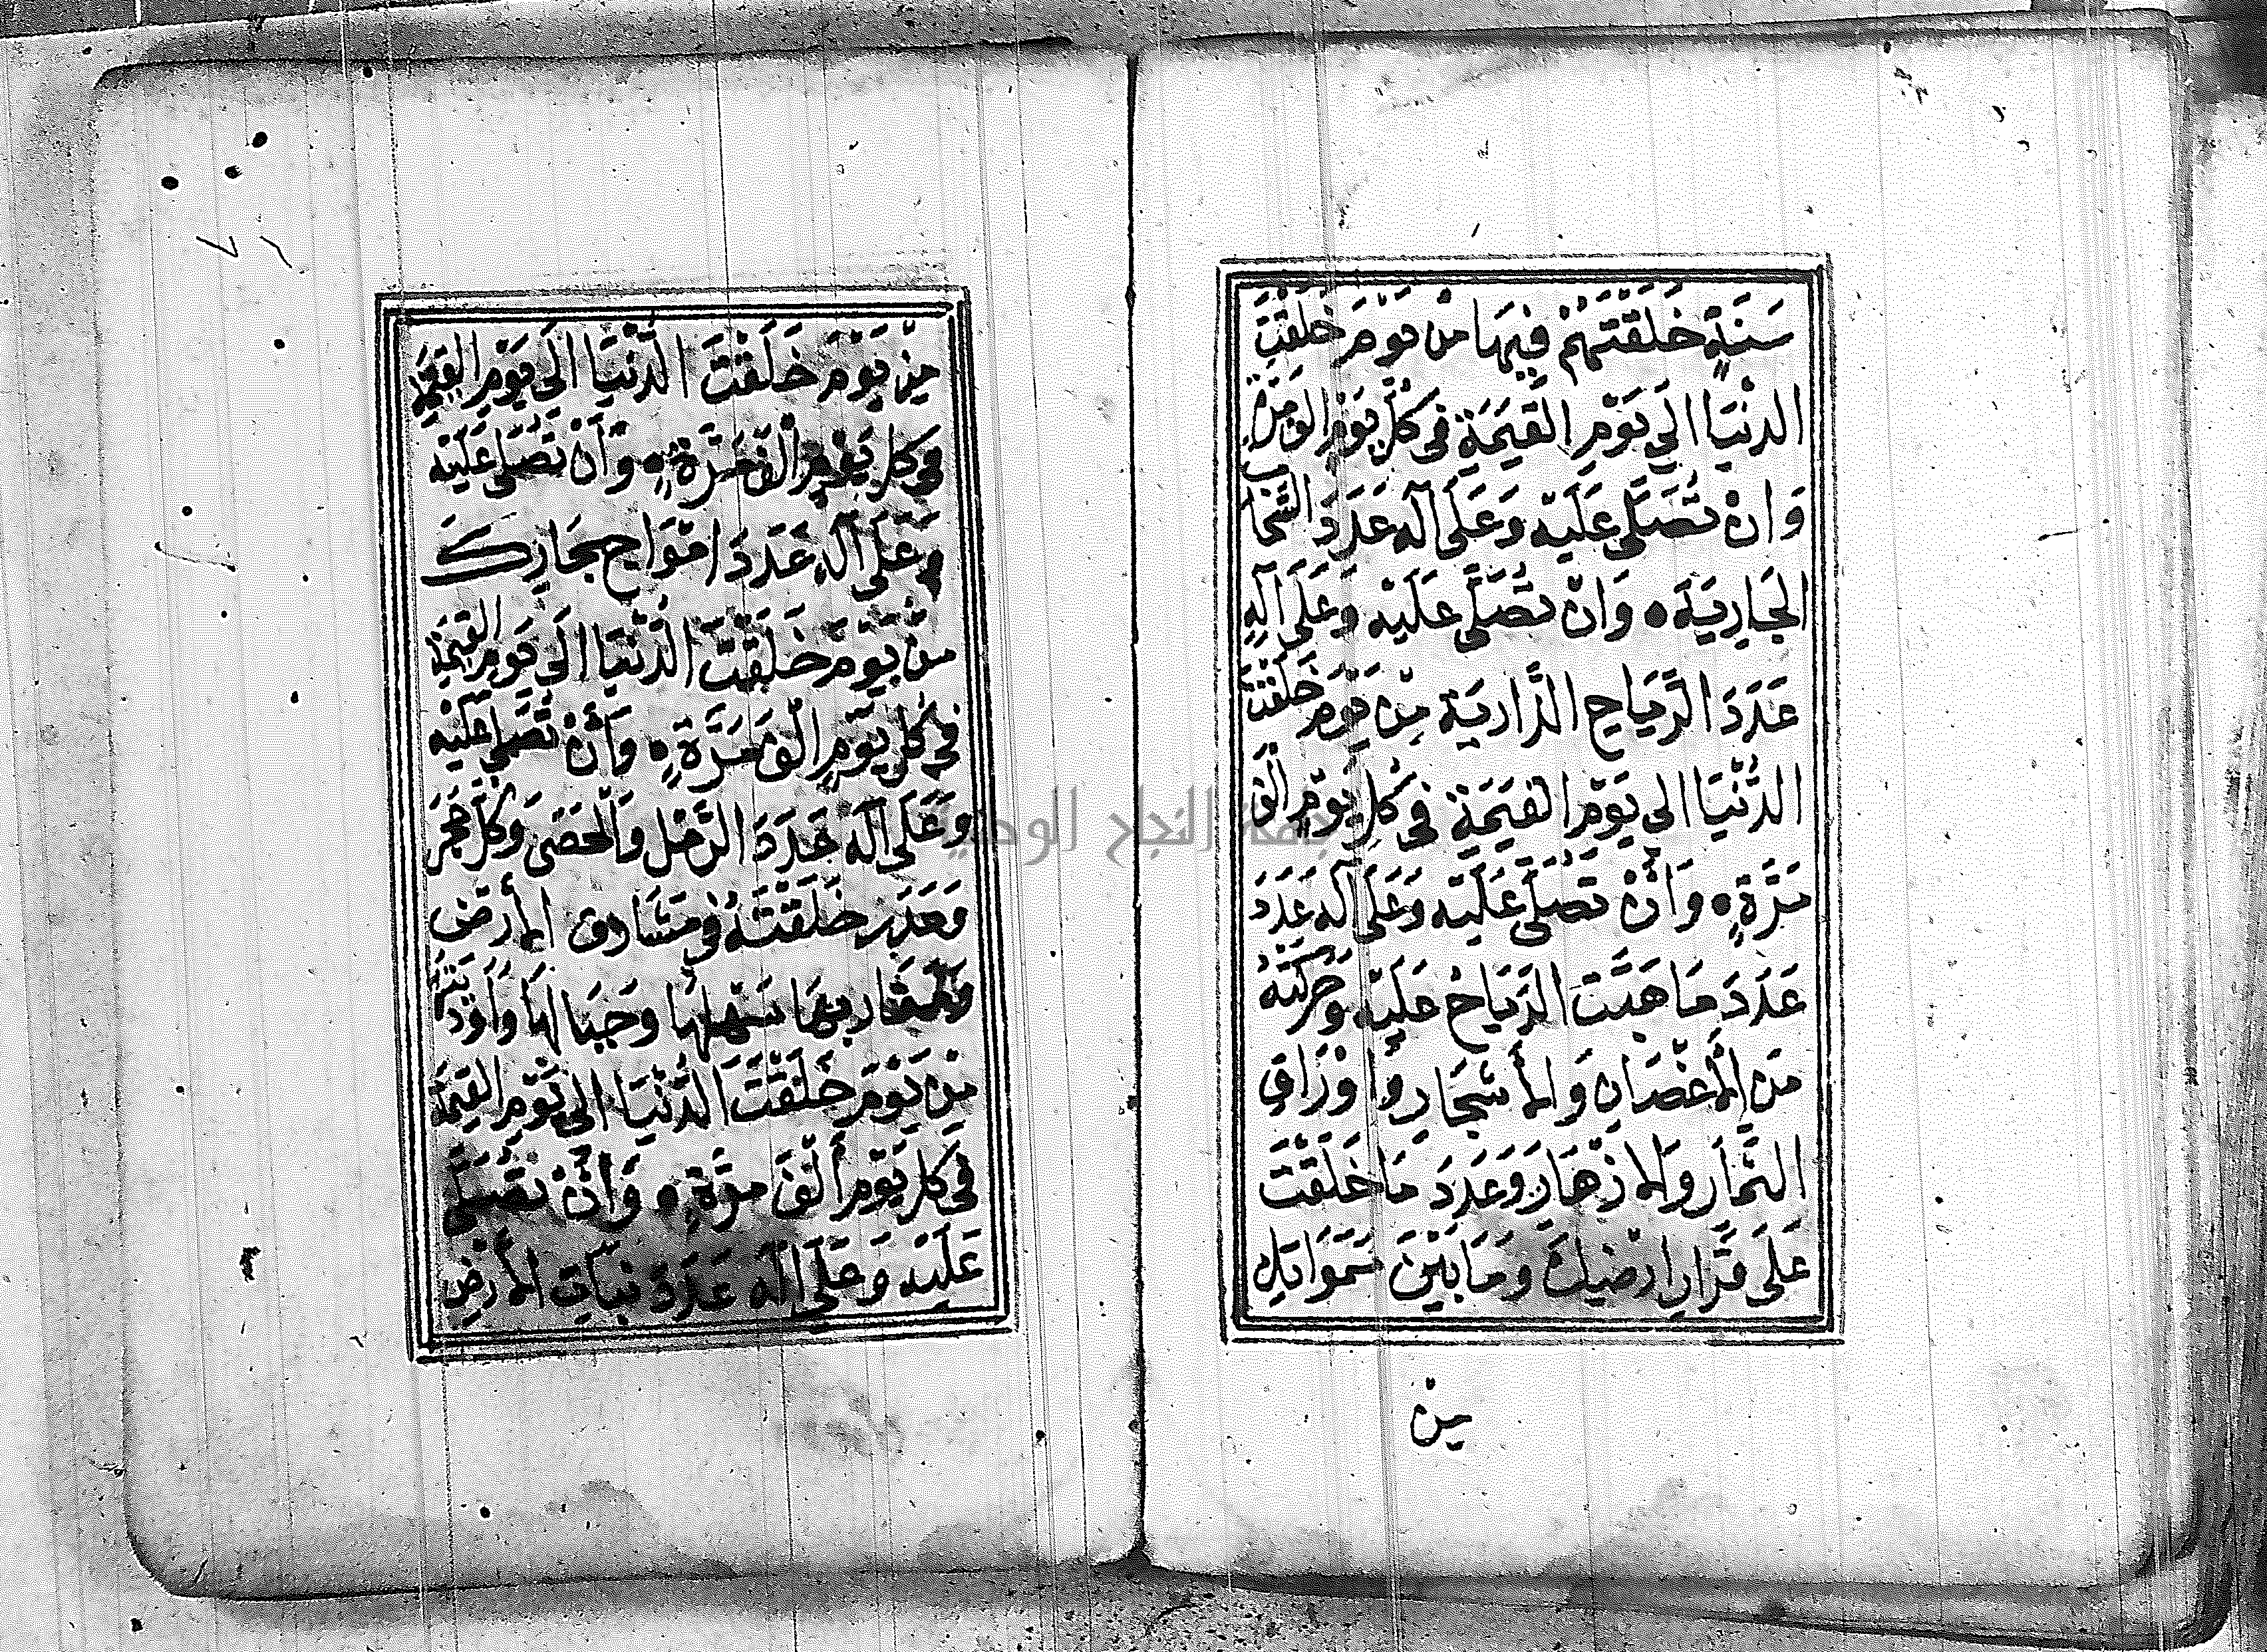 سَنَةٍ خَلَقْتَهُمْ فِيهَا مِنْ يَوْمَ خَلَقْتَ
الدُّنْيَا اِلَى يَوْمِ الْقِيمَةِ فِى كُلِّ يَوْمٍ اَلْفَ مَرَّةٍ
وَاَنْ تُصَلِّىَ عَلَيْهِ وَعَلَى آلِهِ عَدَدَ السَّحَابِ
الْجَارِيَةِ ٥ وَاَنْ تُصَلِّىَ عَلَيْهِ وَعَلَى آلِهِ
عَدَدَ الرِّيَاحِ الذَّارِيَةِ مِنْ يَوْمَ خَلَقْتَ
الدُّنْيَا اِلَى يَوْمِ الْقِيمَةِ فِى كُلِّ يَوْمٍ اَلْفَ
مَرَّةٍ ٥ وَاَنْ تُصَلِّىَ عَلَيْهِ وَعَلَى آلِهِ عَدَدَ
عَدَدَ مَا هَبَّتِ الرِّيَاحُ عَلَيْهِ وَحَرَّكَتْهُ
مِنَ الْأَغْصَانِ وَالْأَشْجَارِ وَاَوْرَاقِ
الثِّمَارِ وَالْأَزْهَارِ وَعَدَدَ مَا خَلَقْتَ
عَلَى قَرَارِ اَرْضِكَ وَمَا بَيْنَ سَمَوَاتِكَ
مِنْ
مِنْ يَوْمَ خَلَقْتَ الدُّنْيَا اِلَى يَوْمِ الْقِيمَةِ
فِى كُلِّ يَوْمٍ اَلْفَ مَرَّةٍ ٥ وَاَنْ تُصَلِّىَ عَلَيْهِ
وَعَلَى آلِهِ عَدَدَ اَمْوَاجِ بِحَارِكَ
مِنْ يَوْمَ خَلَقْتَ الدُّنْيَا اِلَى يَوْمِ الْقِيمَةِ
فِى كُلِّ يَوْمٍ اَلْفَ مَرَّةٍ ٥ وَاَنْ تُصَلِّىَ عَلَيْهِ
وَعَلَى آلِهِ عَدَدَ الرَّمْلِ وَالْحَصَى وَكُلِّ حَجَرٍ
وَمَدَرٍ خَلَقْتَهُ فِى مَشَارِقِ الْأَرْضِ
وَمَغَارِبِهَا سَهْلِهَا وَجِبَالِهَا وَاَوْدِيَتِهَا
مِنْ يَوْمَ خَلَقْتَ الدُّنْيَا اِلَى يَوْمِ الْقِيمَةِ
فِى كُلِّ يَوْمٍ اَلْفَ مَرَّةٍ ٥ وَاَنْ تُصَلِّىَ
عَلَيْهِ وَعَلَى آلِهِ عَدَدَ نَبَاتِ الْأَرْضِ
النجاح الوطنية